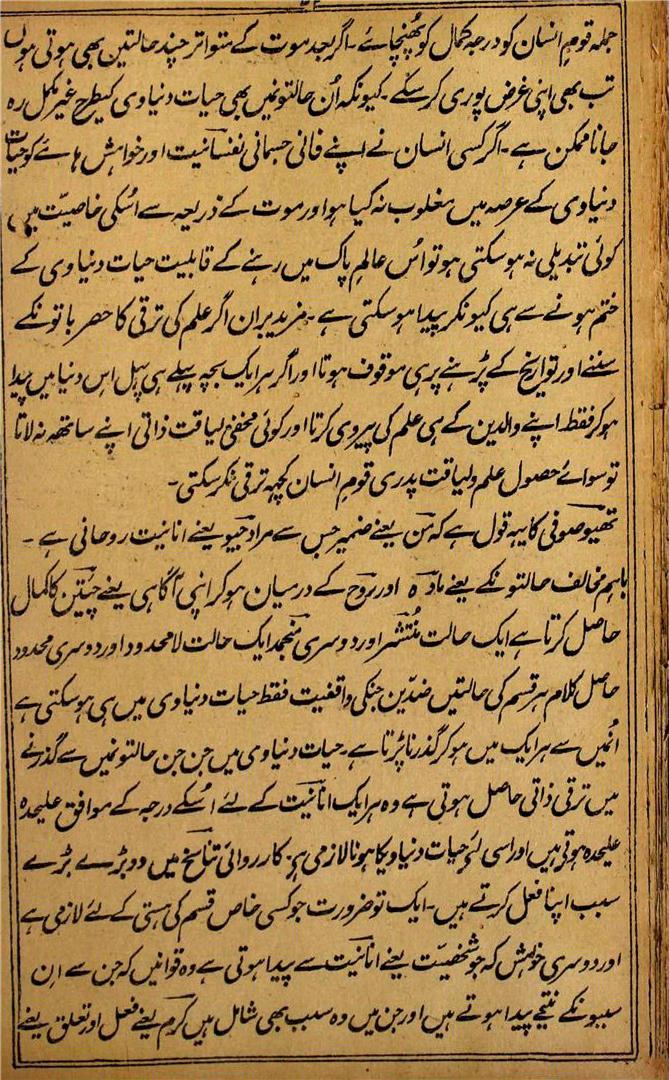 جملہ قومِ انسان کو درجہ کمال کو پُھنچائے ۔ اگر بعد موت کے متواتر چند حالتین بھی ہوتی ہوں
تب بھی اپنی غرض پوری کر سکے ۔ کیونکہ اُن حالتونمیں بھی حیات دنیاوی کیطرح غیر مکمل رہ
جانا ممکن ہے ۔ اگر کسی انسان نے اپنے فانی جسمانی نفسانیت اور خواہش ہائے کو حیات
دنیاوی کے عرصہ میں مغلوب نہ کیا ہو اور موت کے ذریعہ سے اُسکی خاصیّت میں
کوئی تبدیلی نہ ہو سکتی ہو تو اُس عالمِ پاک میں رہنے کے قابلیت حیات دنیاوی کے
ختم ہونے سے ہی کیونکر پیدا ہو سکتی ہے ۔ مزید بران اگر علم کی ترقی کا حصر باتونکے
سننے اور تواریخ کے پڑہنے پر ہی موقوف ہوتا اور اگر ہر ایک بچہ پہلے ہی پہل اس دنیا میں پیدا
ہو کر فقط اپنے والدین کے ہی علم کی پیروی کرتا اور کوئی مخفی لیاقت ذاتی اپنے ساتھہ نہ لاتا
تو سوائے حصول علم و لیاقت پدری قومِ انسان کچہہ ترقی نکر سکتی ۔
تھیوصوفی کا یہہ قول ہے کہ من یعنے ضمیر جس سے مراد جیو یعنے انانیت روحانی ہے ۔
باہم مخالف حالتونکے یعنے مادہ اور روح کے درمیان ہو کر اپنی آگاہی یعنے چیتن کا کمال
حاصل کرتا ہے ایک حالت مُنتشر اور دوسری منجمد ایک حالت لامحدود اور دوسری محدود
حاصل کلام ہر قسم کی حالتیں ضدّین جنکی واقفیت فقط حیات دنیاوی میں ہی ہو سکتی ہے
اُنمیں سے ہر ایک میں ہو کر گذرنا پڑتا ہے ۔ حیات دنیاوی میں جن جن حالتونمیں سے گذرنے
میں ترقی ذاتی حاصل ہوتی ہے وہ ہر ایک انانیّت کے لئے اُسکے درجہ کے موافق علیحدہ
علیحدہ ہوتی ہیں اور اسی لئے حیات دنیاویکا ہونا لازمی ہے کارروائی تناسخ میں دو بڑے بڑے
سبب اپنا فعل کرتے ہیں ۔ ایک تو ضرورت جو کسی خاص قسم کی ہستی کے لئے لازمی ہے
اور دوسری خواہش کہ جو شخصیّت یعنے انانیت سے پیدا ہوتی ہے وہ قوانیں کہ جن سے اِن
سببونکے نتیجے پیدا ہوتے ہیں اور جن میں وہ سبب بھی شامل ہیں کرم یعنے فعل اور تعلق یعنے